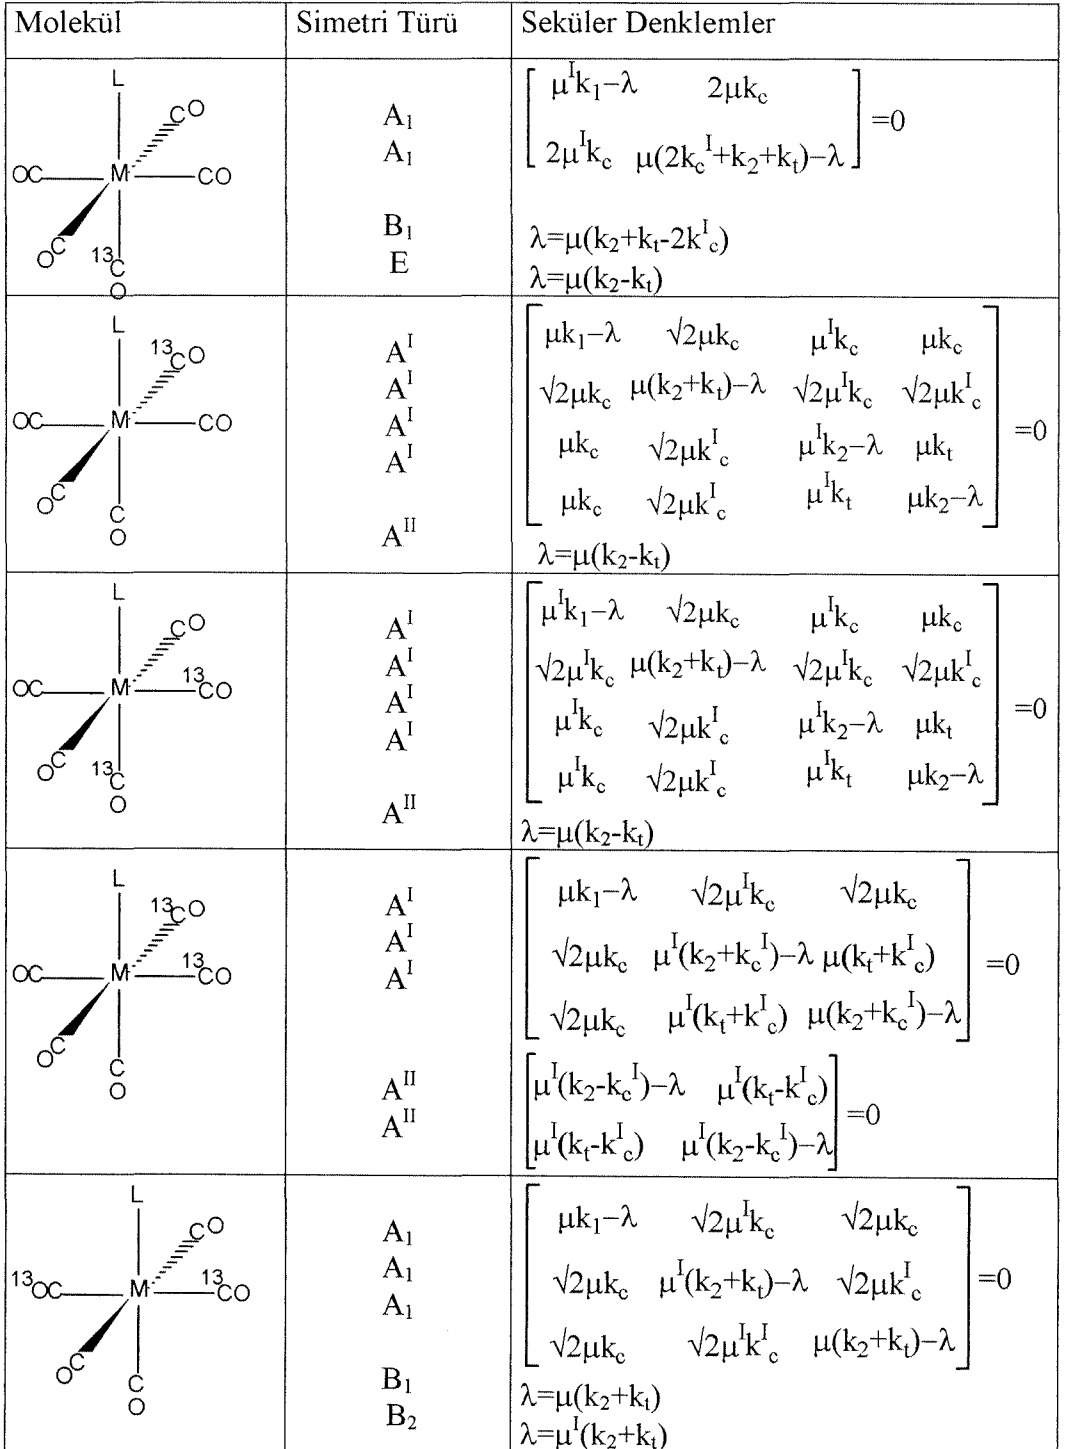 Molekül Simetri Türü Seküler Denklemler
L
CO
OC M CO
OC
13C
O
A1
A1
B1
E
μ^I k1−λ 2μkc
=0
2μ^I kc μ(2kc^I+k2+kt)−λ
λ=μ(k2+kt-2k^I c)
λ=μ(k2-kt)
L
13CO
OC M CO
OC
C
O
A^I
A^I
A^I
A^I
A^II
μk1−λ √2μkc μ^I kc μkc
√2μkc μ(k2+kt)−λ √2μ^I kc √2μk^I c
=0
μkc √2μk^I c μ^I k2−λ μkt
μkc √2μk^I c μ^I kt μk2−λ
λ=μ(k2-kt)
L
CO
OC M 13CO
OC
13C
O
A^I
A^I
A^I
A^I
A^II
μ^I k1−λ √2μkc μ^I kc μkc
√2μ^I kc μ(k2+kt)−λ √2μ^I kc √2μk^I c
=0
μ^I kc √2μk^I c μ^I k2−λ μkt
μ^I kc √2μk^I c μ^I kt μk2−λ
λ=μ(k2-kt)
L
13CO
OC M 13CO
OC
C
O
A^I
A^I
A^I
A^II
A^II
μk1−λ √2μ^I kc √2μkc
√2μkc μ^I(k2+kc^I)−λ μ(kt+k^I c)
=0
√2μkc μ^I(kt+k^I c) μ(k2+kc^I)−λ
μ^I(k2-kc^I)−λ μ^I(kt-k^I c)
=0
μ^I(kt-k^I c) μ^I(k2-kc^I)−λ
L
CO
13OC M 13CO
OC
C
O
A1
A1
A1
B1
B2
μk1−λ √2μ^I kc √2μkc
√2μkc μ^I(k2+kt)−λ √2μk^I c
=0
√2μkc √2μ^I k^I c μ(k2+kt)−λ
λ=μ(k2+kt)
λ=μ^I(k2+kt)